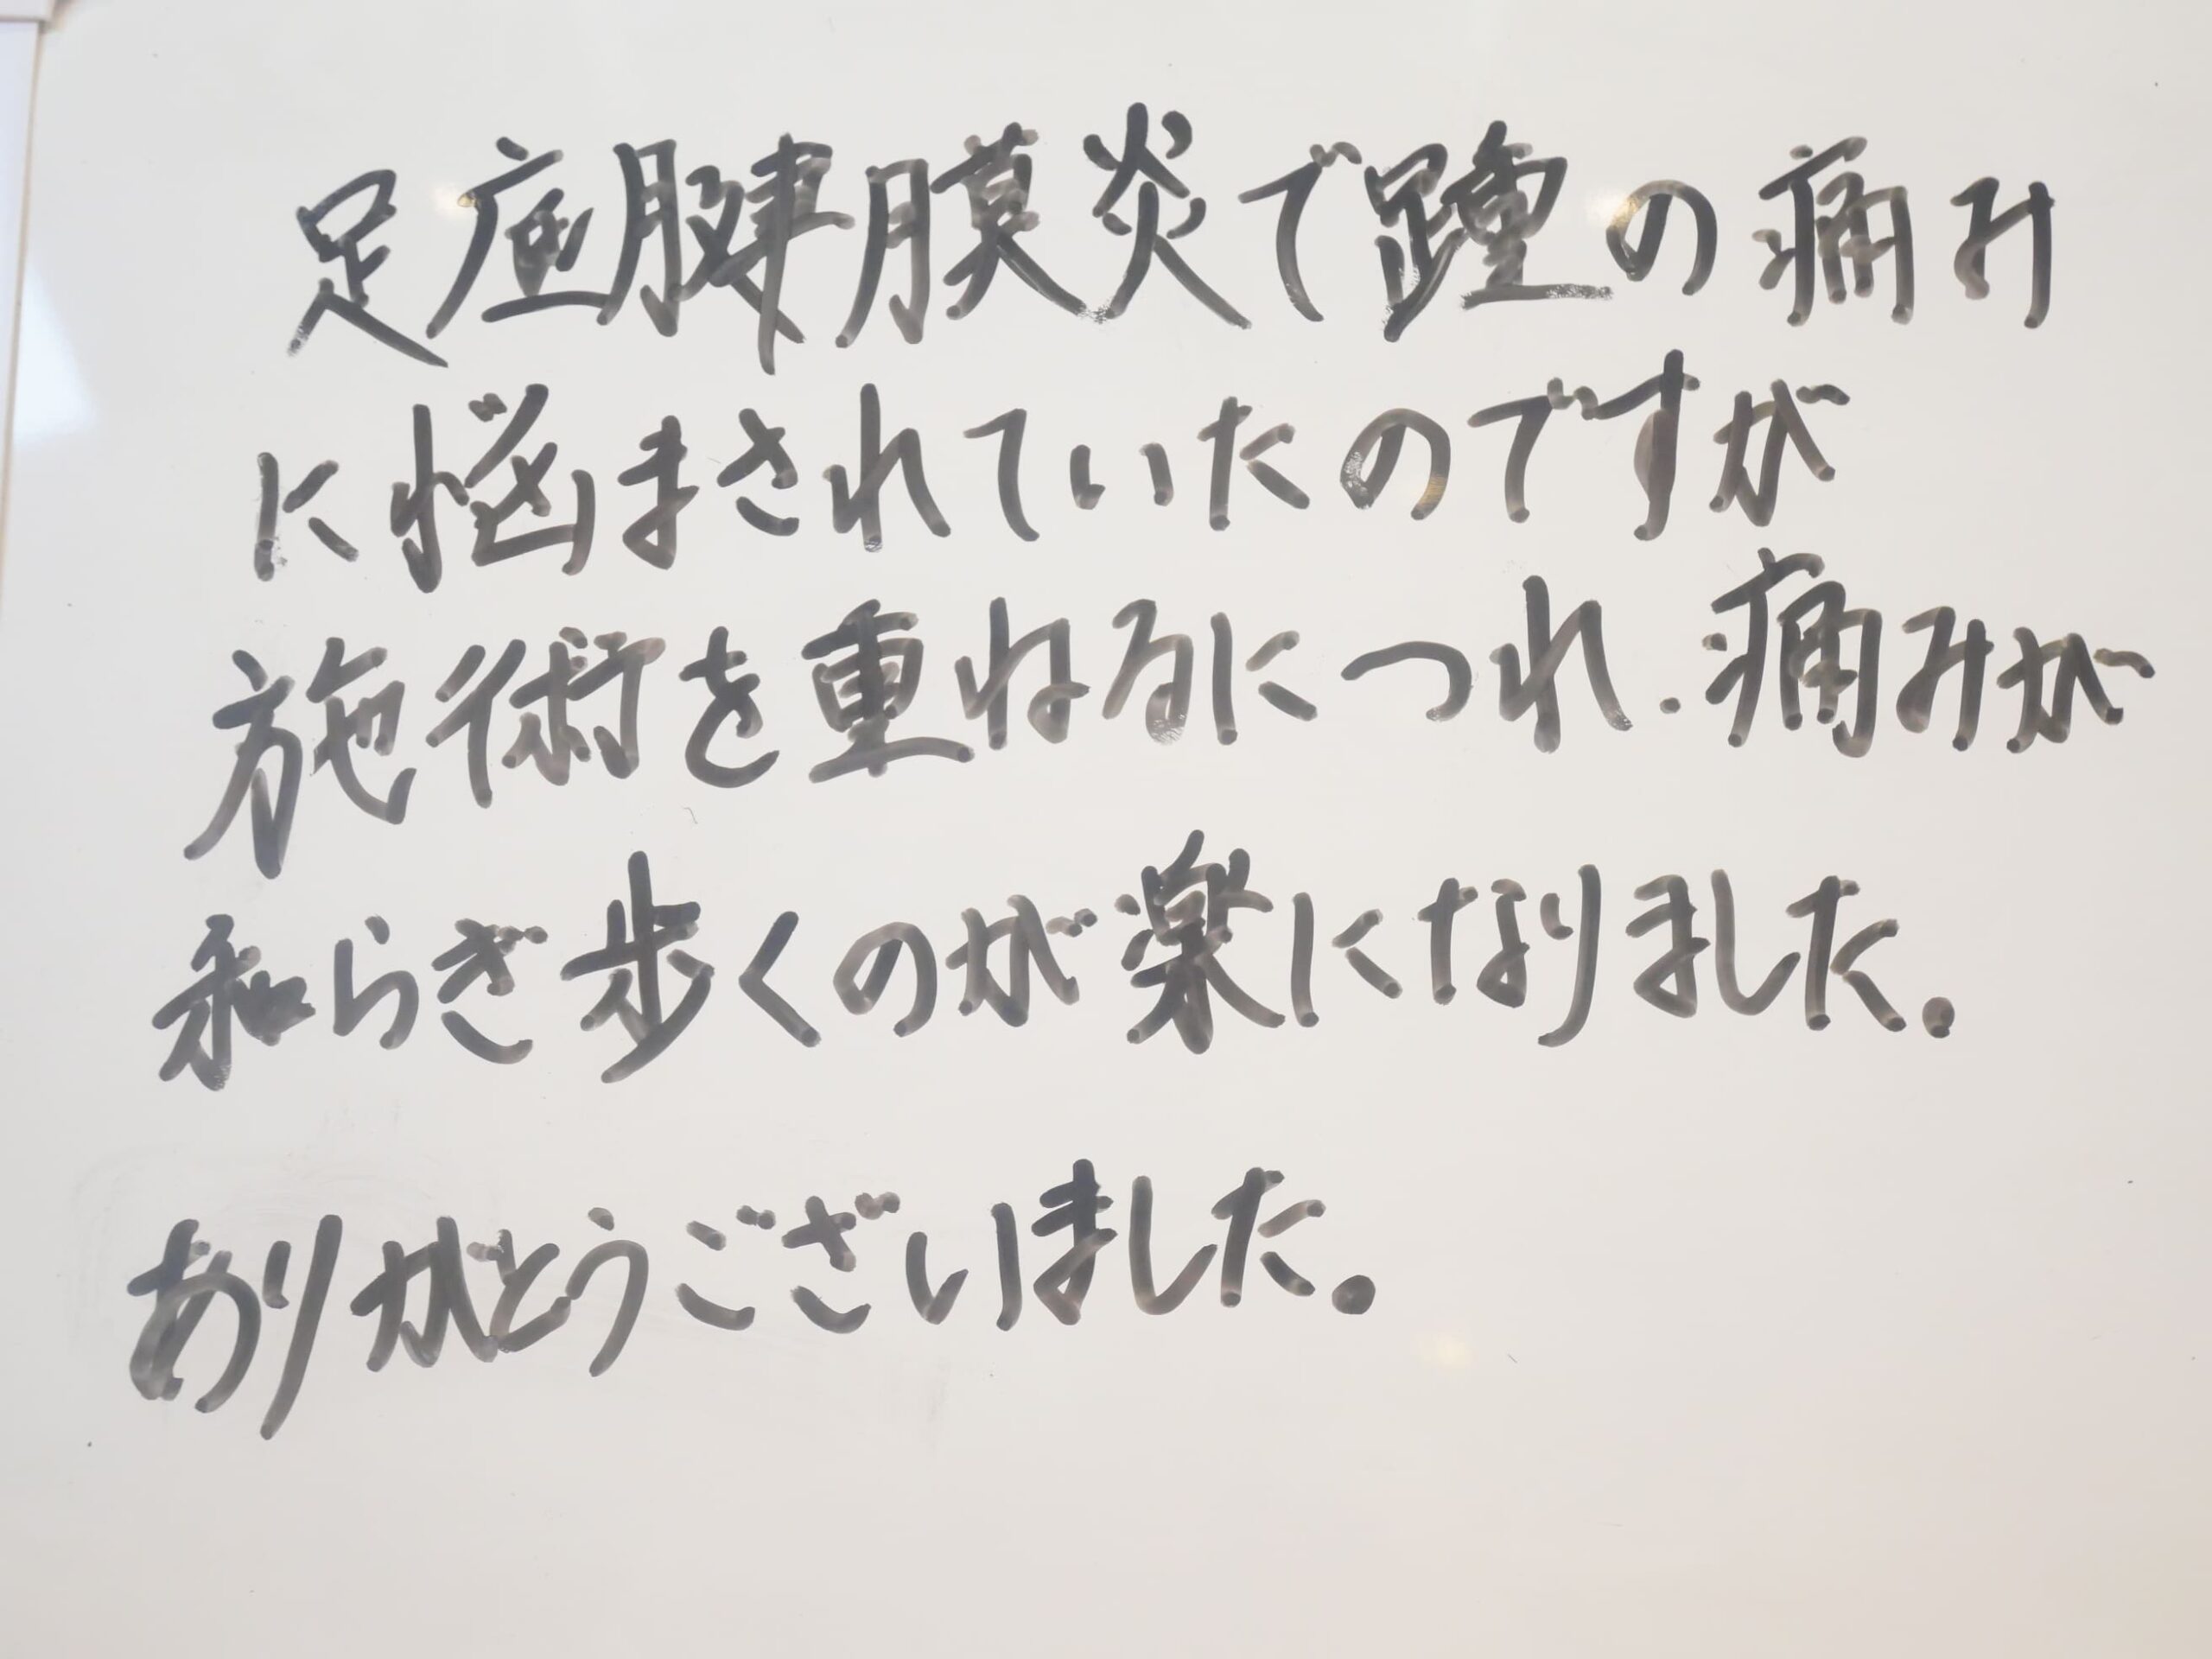 足底腱膜炎で踵の痛み
に悩まされていたのですが
施術を重ねるにつれ、痛みが
和らぎ歩くのが楽になりました。
ありがとうございました。